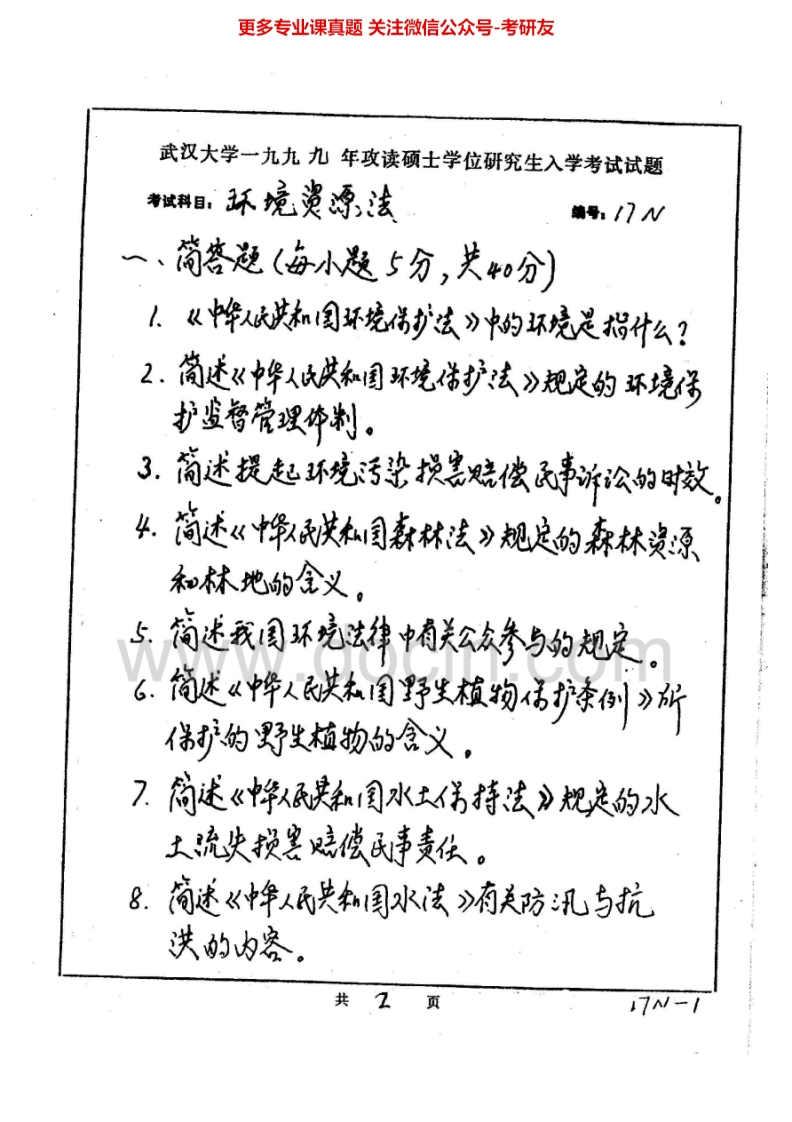 更多专业课真题 关注微信公众号-考研友
武汉大学一九九 九 年攻读硕士学位研究生入学考试试题
考试科目：环境资源法 编号：17N
一、简答题（每小题5分，共40分）
1. 《中华人民共和国环境保护法》中的环境是指什么？
2. 简述《中华人民共和国环境保护法》规定的环境保
护监督管理体制。
3. 简述提起环境污染损害赔偿民事诉讼的时效。
4. 简述《中华人民共和国森林法》规定的森林资源
和林地的含义。
5. 简述我国环境法律中有关公众参与的规定。
www.docin.com
6. 简述《中华人民共和国野生植物保护条例》所
保护的野生植物的含义。
7. 简述《中华人民共和国水土保持法》规定的水
土流失损害赔偿民事责任。
8. 简述《中华人民共和国水法》有关防汛与抗
洪的内容。
共 2 页 17N-1